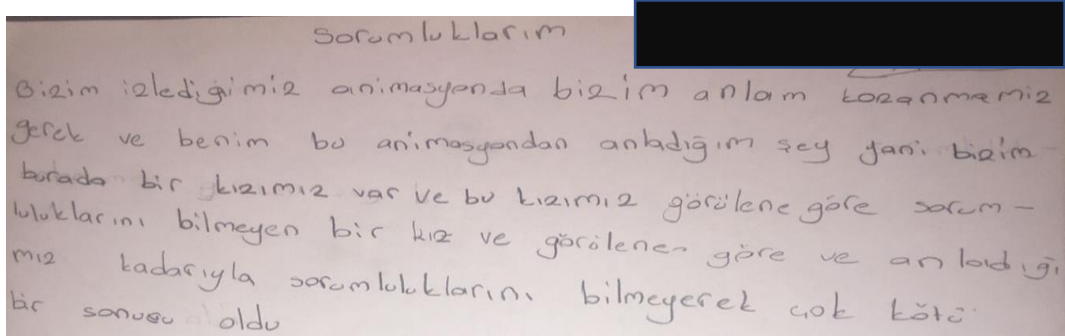 Sorumluklarım
Bizim izlediğimiz animasyonda bizim anlam kozanmamız
gerek ve benim bu animasyondan anladığım şey yani bizim
burada bir kızımız var ve bu kızımız görülene göre sorum-
luluklarını bilmeyen bir kız ve görülenen göre ve anladığı
mız kadarıyla sorumlulukların bilmeyerek çok kötü
bir sonusu oldu